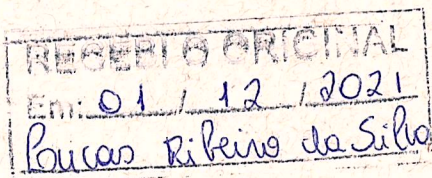 RECEBI O ORIGINAL
Em: 01 / 12 / 2021
Lucas Ribeiro da Silva